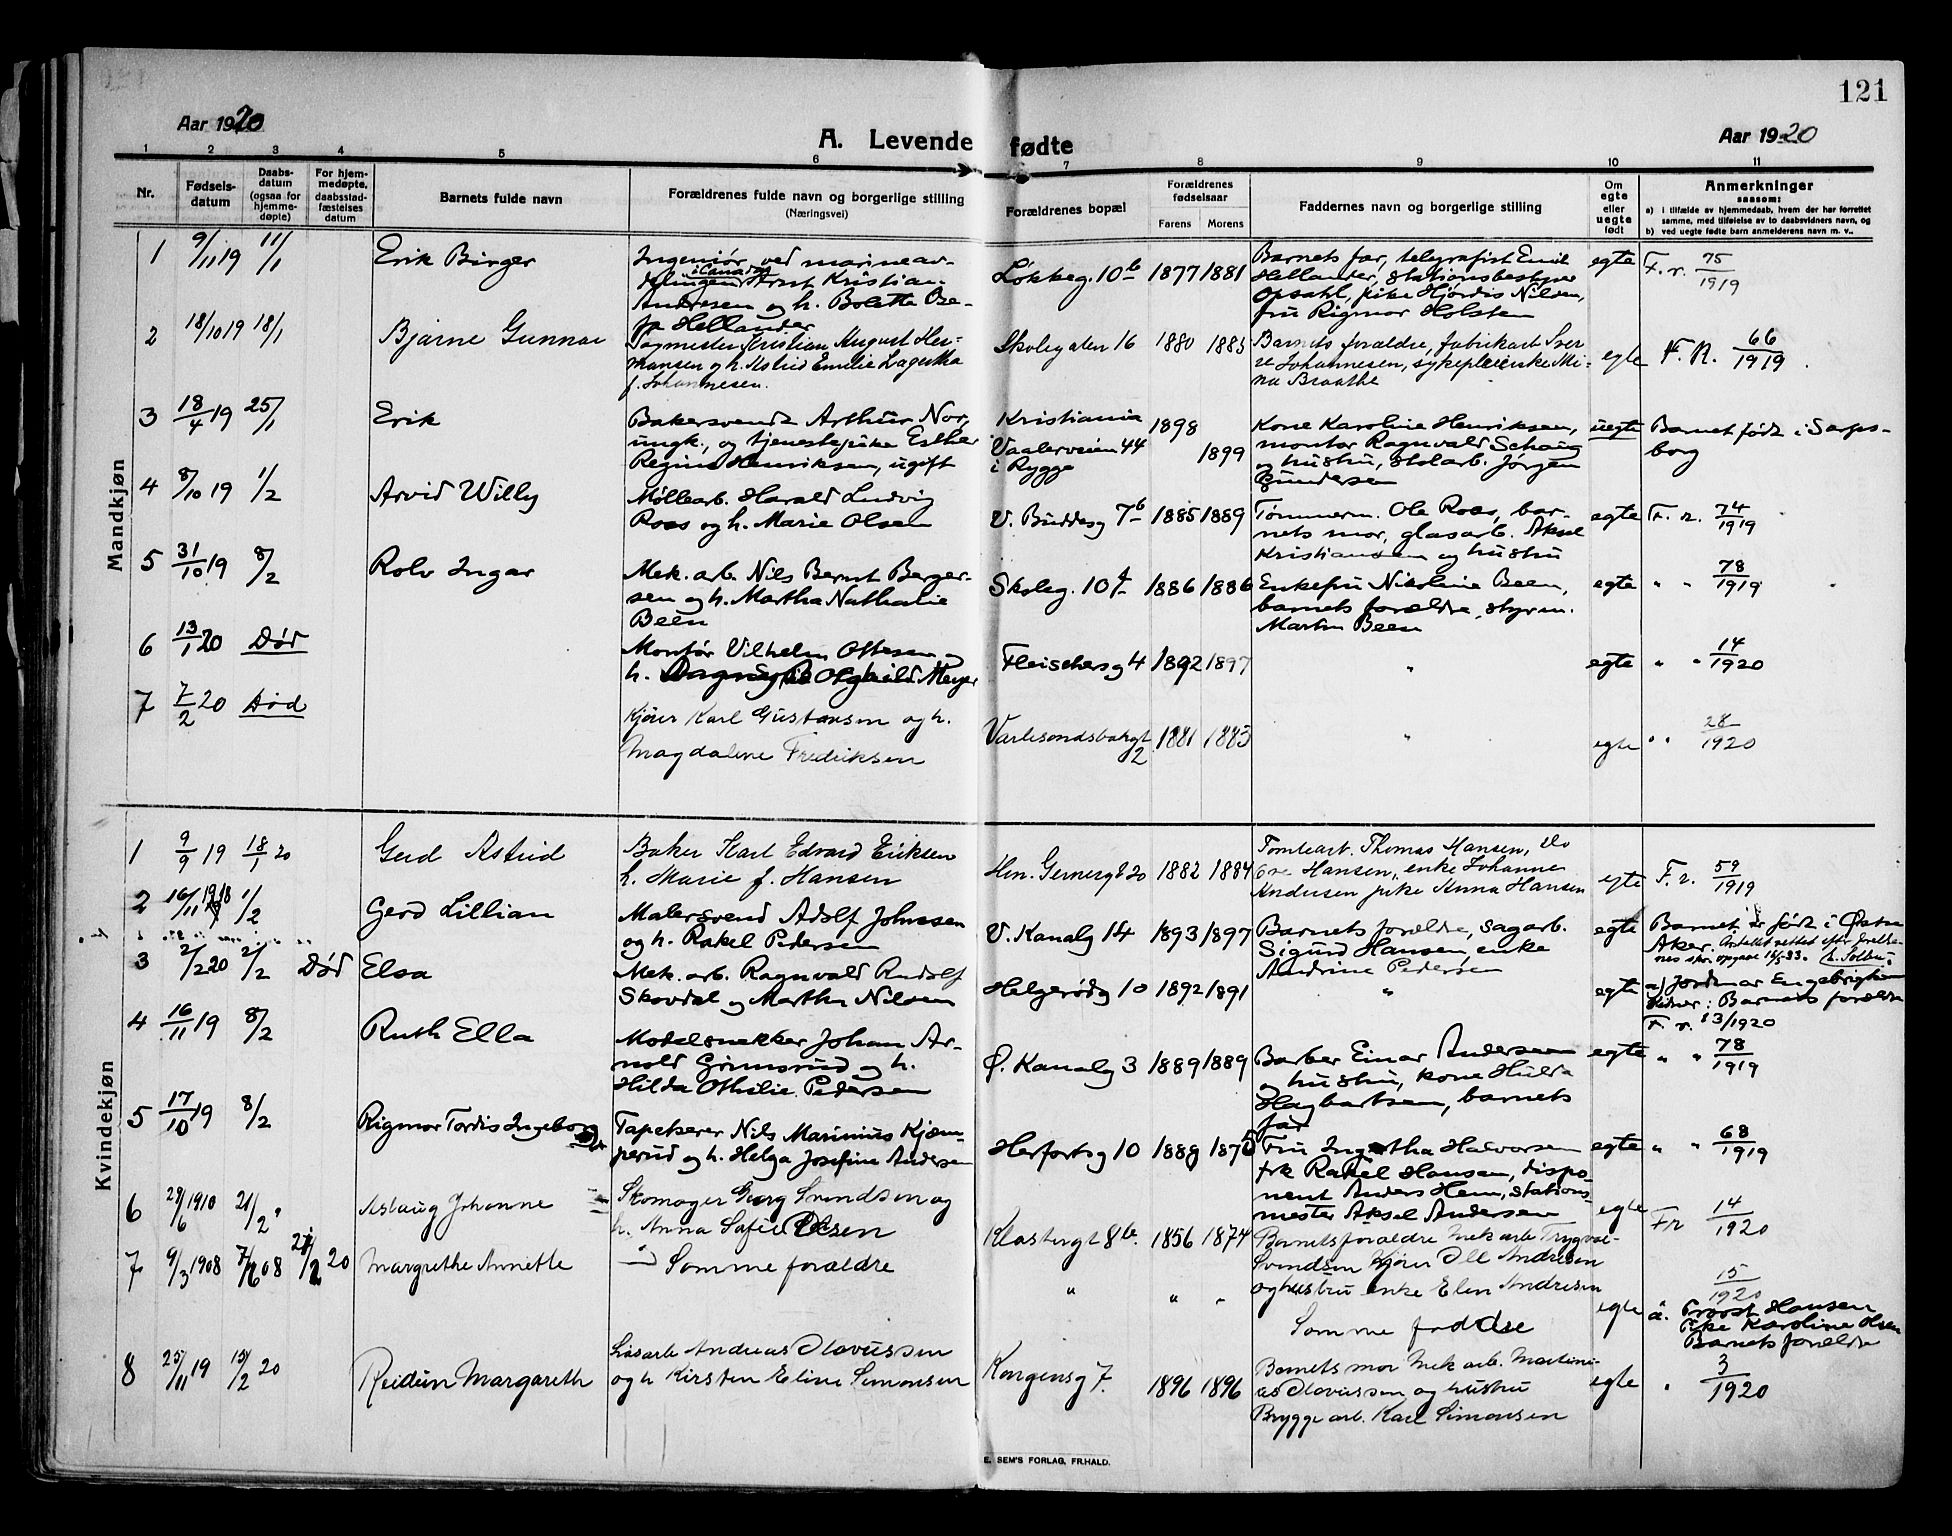 121
Aar 1920
A. Levende fødte
Aar 1920
1 2 3 4 5 6 7 8 9 10 11
Nr.
Fødsels-
datum
Daabs-
datum
(ogsaa for
hjemme-
døpte)
For hjem-
medøpte,
daabsstad-
fæstelses
datum
Barnets fulde navn
Forældrenes fulde navn og borgerlige stilling
(Næringsvei)
Forældrenes bopæl
Forældrenes
fødselsaar
Farens Morens
Faddernes navn og borgerlige stilling
Om
egte
eller
uegte
født
Anmerkninger
saasom:
a) i tilfælde av hjemmedaab, hvem der har forrettet
samme, med tilføielse av to daabsvidners navn, og
b) ved uegte fødte barn anmelderens navn m. v.
Mandkjøn
1 9/11 19 11/1 Erik Birger
Ingeniør ved marineav-
i Canada
Arnt Kristian
Andresen og h. Bolette Ose-
fa Hellander
Løkkeg. 10b 1877 1881
Barnets far, telegrafist Emil
Hellander, stationsbestyrer
Opsahl, pike Hjørdis Nilsen,
fru Rigmor Holsten
egte F. r. 75/1919
2 18/10 19 18/1 Bjarne Gunnar
Kristian August Her-
mansen og h. Astrid Emilie Lagertha
f. Johannesen.
Skolegaten 16 1880 1885
Barnets forældre, fabrikarb Sver-
re Johannesen, sykepleierske Mi-
na Braathe
egte F. R. 66/1919
3 18/4 19 25/1 Erik
Bakersvend Arthur Nor,
ungk., og tjenestepike Esther
Regine Henriksen, ugift
Kristiania 1898
Vaalerveien 44
i Rygge 1899
Kone Karoline Henriksen,
montør Ragnvald Schaug
og hustru, stolarb. Jørgen
Gundersen
uegte Barnet født i Sarps-
borg
4 8/10 19 1/2 Arvid Willy
Møllearb. Harald Ludvig
Roos og h. Marie Olsen
V. Buddesg 7b 1885 1889
Tømmerm. Ole Roos, bar-
nets mor, glasarb. Aksel
Kristiansen og hustru
egte F. r. 74/1919
5 31/10 19 8/2 Rolv Ingar
Mek. arb. Nils Bernt Berger-
sen og h. Martha Nathalie
Been
Skoleg. 10 1886 1886
Enkefru Nikoline Been,
barnets forældre, styrm.
Martin Been
egte " " 78/1919
6 13/1 20 Død
Montør Vilhelm Ottesen og
h. Olghild Meyer
Fleischersg 4 1892 1897 " egte " " 14/1920
7 7/2 20 Død
Kjører Karl Gustavsen og h.
Magdalene Fredriksen
2 1881 1883 " egte " " 28/1920
Kvindekjøn
1 9/9 19 18/1 20 Gerd Astrid
Baker Karl Edvard Eriksen
h. Marie f. Hansen
Hen. Gernersgt 20 1882 1884
Tomtearb. Thomas Hansen,
Hansen, enke Johanne
Andersen pike Anna Hansen
egte F. r. 59/1919
2 16/11 1918 1/2 Gerd Lillian
Malersvend Adolf Johnsen
og h. Rakel Pedersen
V. Kanalg 14 1893 1897
Barnets forældre, sagarb.
Sigurd Hansen, enke
Andrine Pedersen
egte Barnet er født i Østre
Aker.
3 2/2 20 2/2 Død Elsa
Mek. arb. Ragnvald Rudolf
Skovdal og Martha Nilsen
Helgerødg 10 1892 1891 " egte a) Jordmor Engebrigtsen
Vidner: Barnets forældre
F. r. 13/1920
4 16/11 19 8/2 Ruth Ella
Modelsnekker Johan Ar-
nold Grimsrud og h.
Hilda Othilie Pedersen
Ø. Kanalg 3 1889 1889
Barber Einar Andersen
og hustru, kone Hulda
Hagbartsen, barnets
far
egte " " 78/1919
5 17/10 19 8/2 Rigmor Tordis Ingeborg
Tapetserer Nils Marinius Kjem-
perud og h. Helga Josefine Andersen
Herfortsg 10 1888 1875
Fru Halvorsen
frk Rakel Hansen, dispo-
nent Anders Hem, stations-
mester Aksel Andersen
egte " " 68/1919
6 29/6 1910 21/2 " Aslaug Johanne
Skomager Georg Svendsen og
h. Anna Sofie Olsen
Klostergt 8b. 1856 1874
Barnets forældre Mek arb Trygve
Svendsen Kjører Ole Andresen
og hustru enke Elen Andresen
egte Fr 14/1920
7 9/3 1908 7/6 08 21/2 20 Margrethe Annette
Samme forældre
" " "
Samme faddere
egte 15/1920
a. Provst Hansen
Pike Karoline Olsen
Barnets forældre
8 25/11 19 15/2 20 Reidun Margareth
Løsarb Andreas Olavussen
og h Kirsten Eline Simonsen
Kongensg 7. 1896 1896
Barnets mor Mek arb. Martini-
us Olavussen og hustru
Brygge arb. Karl Simonsen
egte " 3/1920
E. SEM'S FORLAG, FR.HALD.